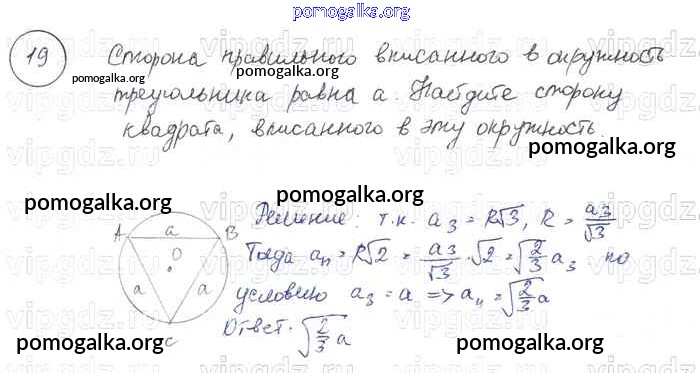 pomogalka.org
19 Сторона правильного вписанного в окружность
pomogalka.org
треугольника равна a. Найдите сторону
квадрата, вписанного в эту окружность.
pomogalka.org
vipgdz.ru
pomogalka.org
pomogalka.org
Решение: т.к. a₃ = R√3, R = a₃/√3
A a B
O
a a
C
Тогда aₙ = R√2 = a₃/√3 · √2 = √(2/3) a₃ по
условию a₃ = a => a₄ = √(2/3) a
Ответ. √(2/3) a
pomogalka.org
pomogalka.org